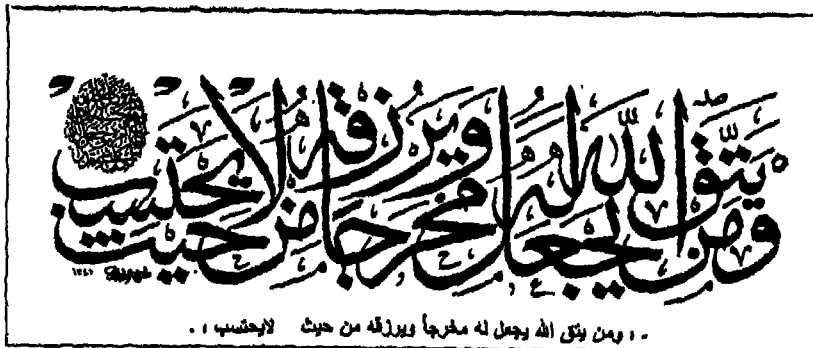 ومن يتق الله يجعل له مخرجا ويرزقه من حيث لا يحتسب
١٣٤٦
ومن يتق الله يجعل له مخرجاً ويرزقه من حيث لايحتسب